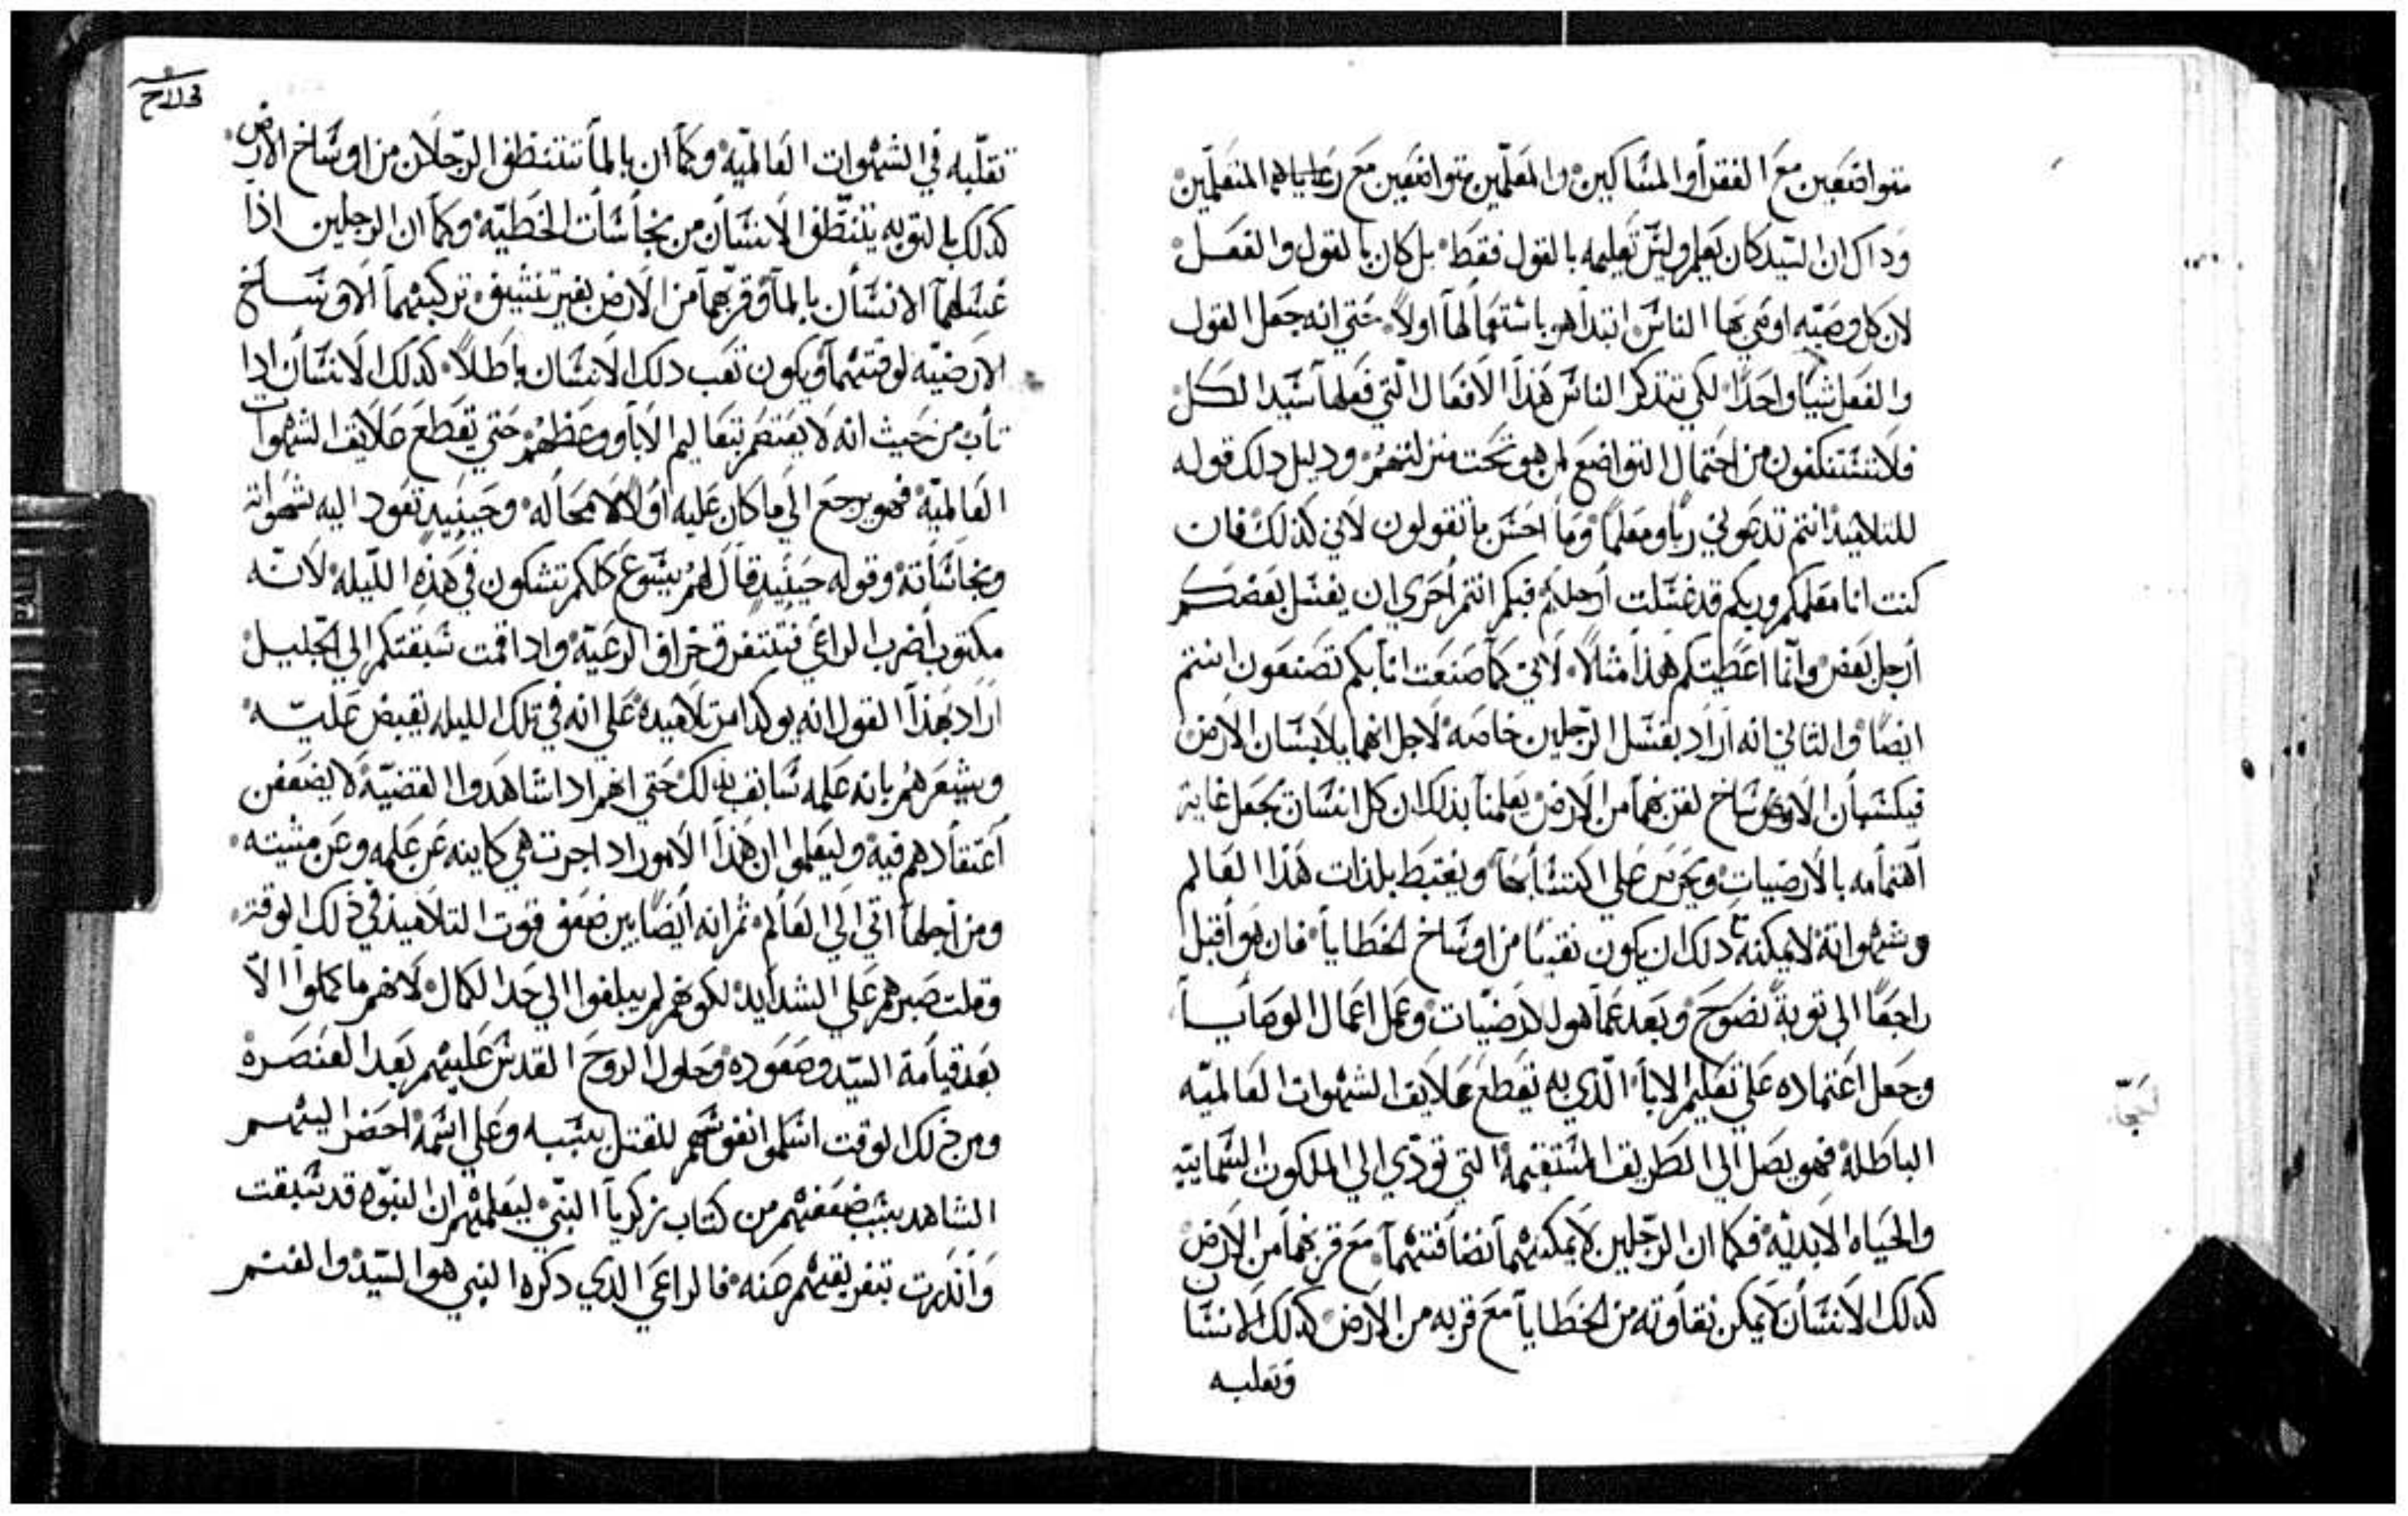 متواضعين مع الفقرا والمساكين والمعلمين متواضعين مع رعاياهم المتعلمين
وداك ان السيد كان يعلم وليس تعليمه بالقول فقط بل كان بالقول والفعل
لان كل وصيه اوصي بها الناس ابتدا هو باستعمالها اولاً حتي انه جعل القول
والفعل شيا واحداً لكي تتذكر الناس هذا الافعال التي فعلها سيد الكل
فلا تستنكفون من احتمال التواضع لمن هو تحت منزلتهم ودليل دلك قوله
للتلاميذ انتم تدعوني رباً ومعلماً وما احسن ما تقولون لاني كذلك فان
كنت انا معلمكم وربكم قد غسلت أرجلكم فبكم انتم أحري ان يغسل بعضكم
أرجل بعض وانما اعطيتكم هذا مثالاً لاني كما صنعت انا بكم تصنعون انتم
ايضاً والثاني انه أراد بغسل الرجلين خاصه لاجل انهما يلابسان الارض
فيكسبان الاوساخ لقربهما من الارض يعلمنا بذلك ان كل انسان يجعل غاية
اهتمامه بالارضيات ويحرس علي اكتسابها ويغتبط بلذات هذا العالم
وشهواته لا يمكنه دلك ان يكون نقياً من اوساخ الخطايا فان هو أقبل
راجعاً الي توبة نصوح وبعد عما هو للارضيات وعمل اعمال الوصايا
وجعل اعتماده علي تعليم الابا الذي به تقطع علايق الشهوات العالميه
الباطلة فهو يصل الي الطريق المستقيمة التي تودي الي الملكوت السمايية
والحياه الابدية فكما ان الرجلين لا يمكنهما نضافتهما مع قربهما من الارض
كدلك الانسان لا يمكن نقاوته من الخطايا مع قربه من الارض كدلك الانسان
وتعلبه
ح ١١٣
تقلبه في الشهوات العالمية وكما ان بالما تتنظف الرجلان من اوساخ الارض
كدلك بالتوبه يتنظف الانسان من نجاسات الخطية وكما ان الرجلين اذا
غسلهما الانسان بالما وقربهما من الارض بغير تنشيف تركبهما الاوساخ
الارضيه لوقتهما ويكون تعب دلك الانسان باطلاً كدلك الانسان ادا
تاب من حيث انه لا يعتصم بتعاليم الابا ووعظهم حتي تقطع علايق الشهوات
العالمية فهو يرجع الي ما كان عليه اولا لا محاله وحينيد تعود اليه شهواته
ونجاساته وقوله حينيد قال لهم يسوع كلكم تشكون في هذه الليله لانه
مكتوب أضرب الراعي فتتفرق خراف الرعية وادا قمت سبقتكم الي الجليل
اراد بهذا القول انه يوكد امر تلاميده علي انه في تلك الليله يقبض عليه
ويشعرهم بانه علمه سابق لدلك حتي انهم ادا شاهدوا القضية لا يضعفن
اعتقادهم فيه وليعلموا ان هذا الامور ادا جرت هي كاينه عن علمه وعن مشيته
ومن أجلها اتي الي العالم ثم انه أيضاً بين ضعف قوت التلاميذ في ذلك الوقت
وقلت صبرهم علي الشدايد لكونهم لم يبلغوا الي حد الكمال لانهم ما كملوا الا
بعد قيامة السيد وصعوده وحلول الروح القدس عليهم بعد العنصرة
ومن ذلك الوقت اسلموا نفوسهم للقتل بسببه وعلي اسمه احضر اليهم
الشاهد بسبب ضعفهم من كتاب زكريا النبي ليعلمهم ان النبوه قد سبقت
وأنذرت بتفريقهم عنه فالراعي الدي دكره النبي هو السيد والغنم